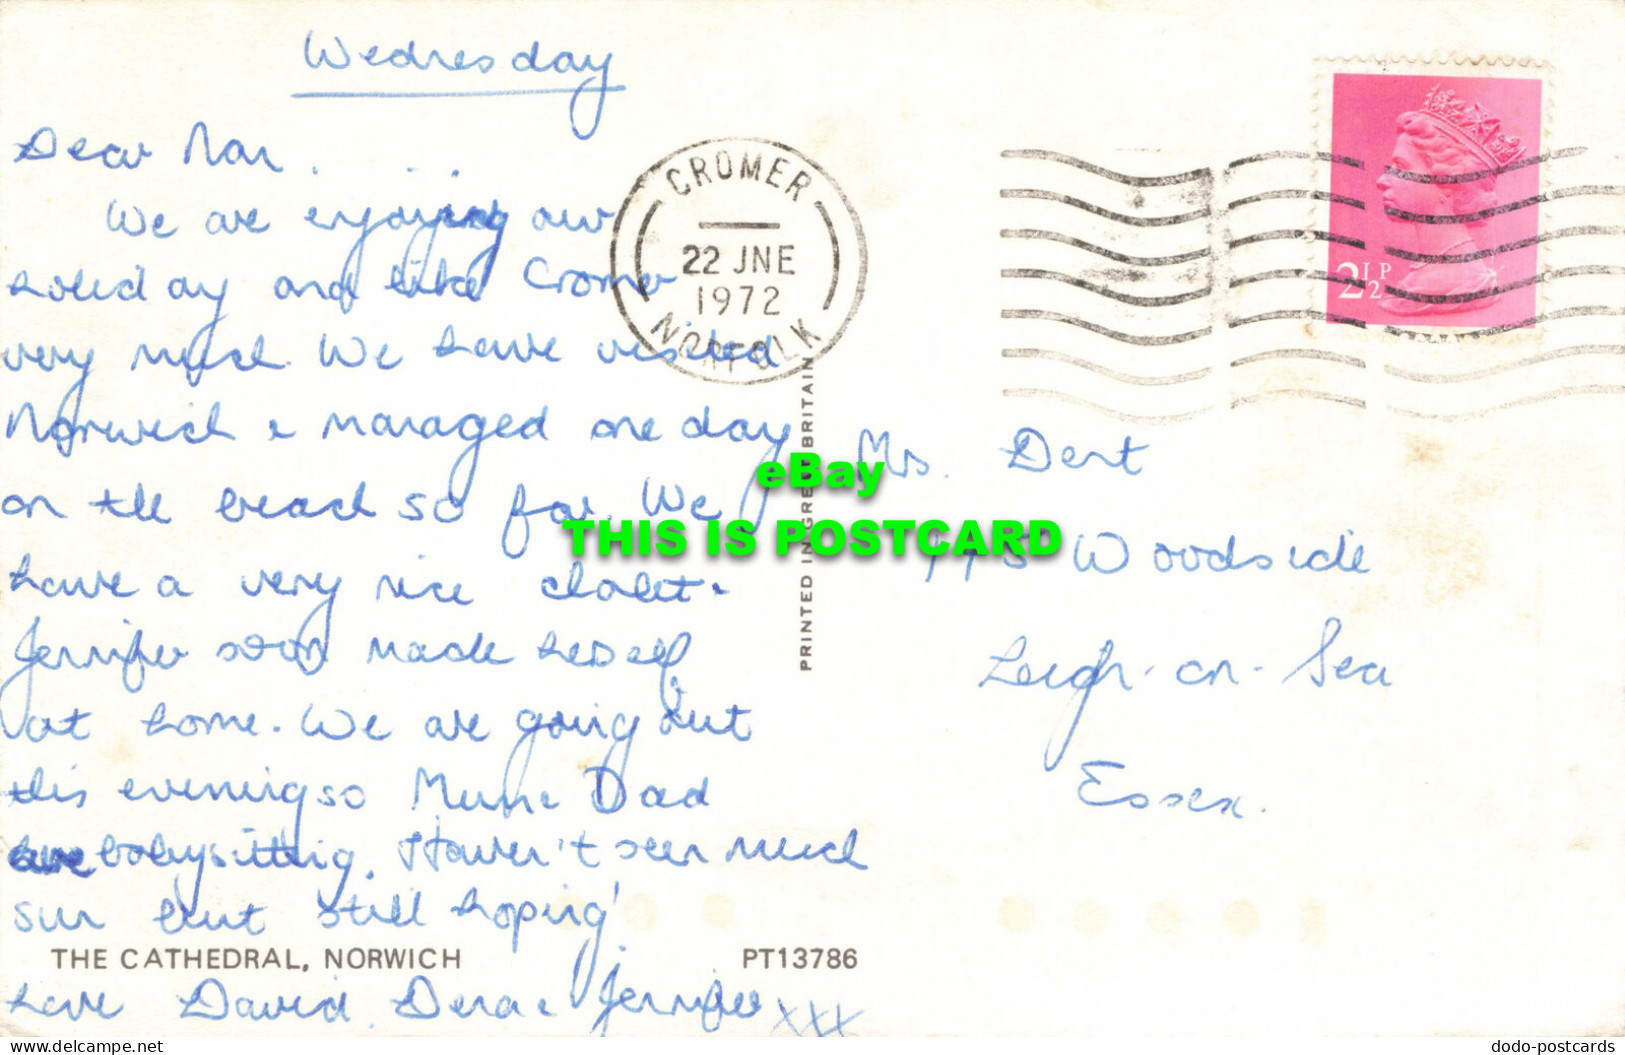 Wednesday
Dear Nan.
We are enjoying our
holiday and like Cromer
very much. We have visited
Norwich & managed one day
on the beach so far. We
have a very nice chalet.
Jennifer soon made herself
at home. We are going out
this evening so Mum & Dad
are babysitting. Haven't seen much
sun but still hoping!
Love David, Dena & Jennifer xxx
THE CATHEDRAL, NORWICH
PT13786
CROMER
22 JNE
1972
NORFOLK
PRINTED IN GREAT BRITAIN
2½P
Mrs. Dent
Woodside
Leigh-on-Sea
Essex.
eBay
THIS IS POSTCARD
dodo-postcards
delcampe.net